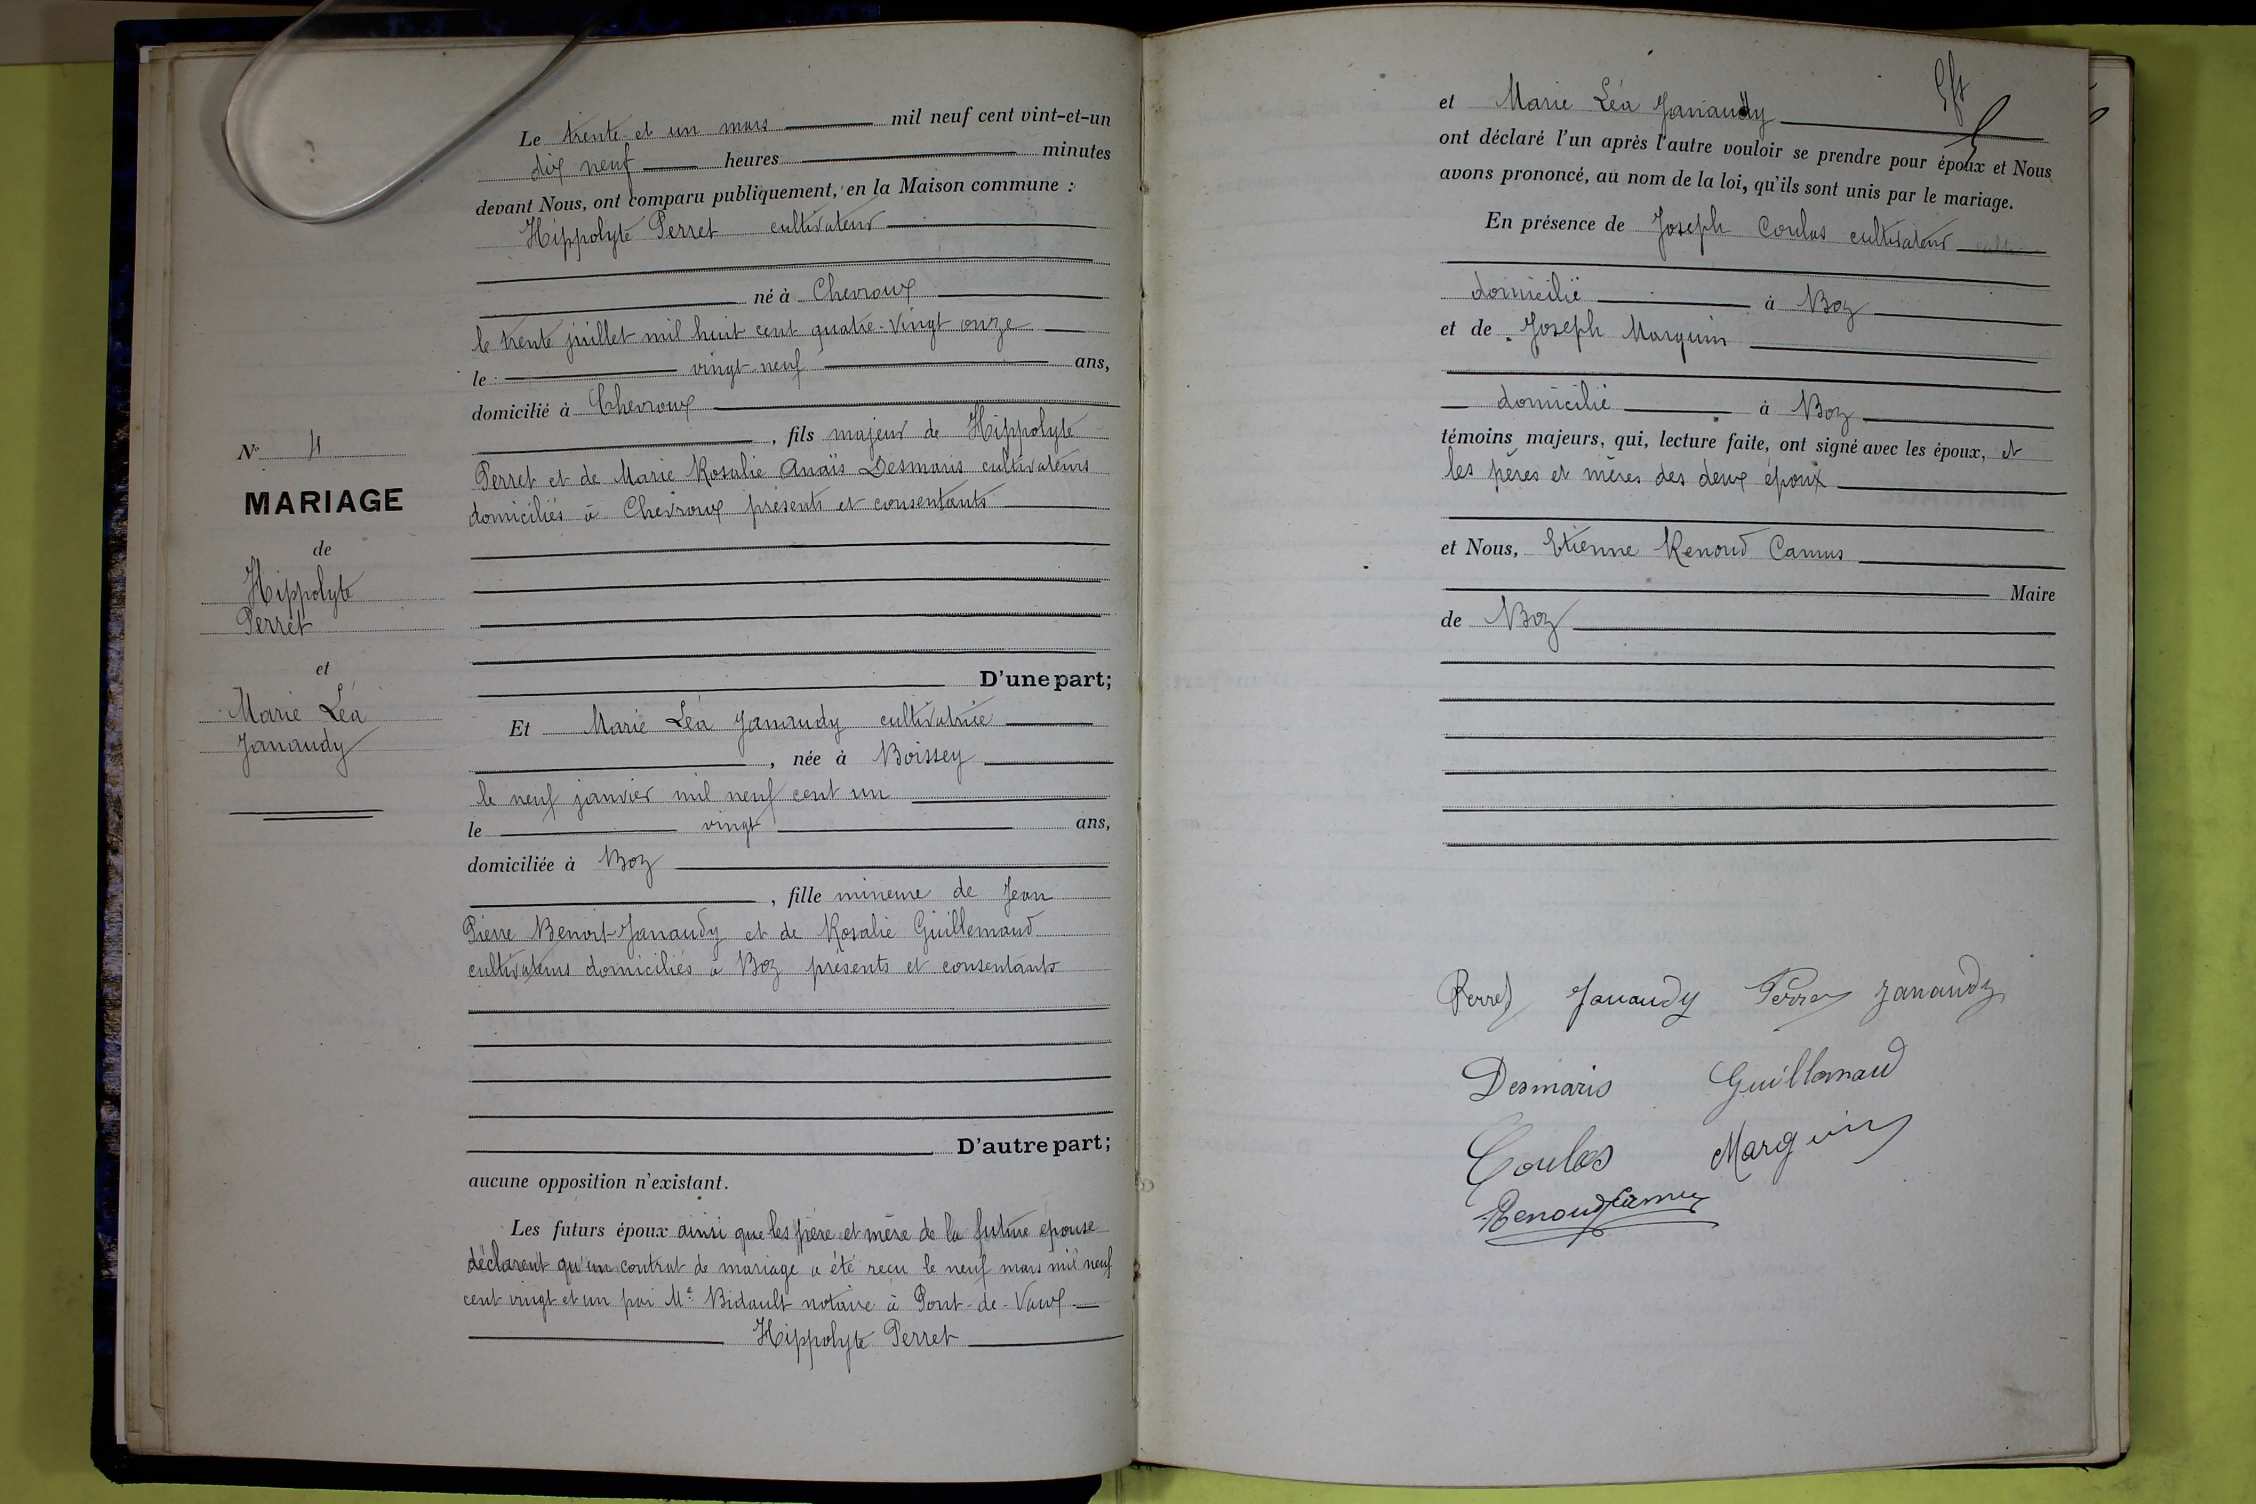 N° 4
MARIAGE
de
Hippolyte
Perret
et
Marie Léa
Janaudy
Le trente et un mars mil neuf cent vint-et-un
dix neuf heures minutes
devant Nous, ont comparu publiquement, en la Maison commune :
Hippolyte Perret cultivateur
né à Chevroux
le trente juillet mil huit cent quatre-vingt onze
le vingt-neuf ans,
domicilié à Chevroux
, fils majeur de Hippolyte
Perret et de Marie Rosalie Anaïs Desmaris cultivateurs
domiciliés à Chevroux présents et consentants
D'une part;
Et Marie Léa Janaudy cultivatrice
, née à Boissey
le neuf janvier mil neuf cent un
le vingt ans,
domiciliée à Boz
, fille mineure de Jean
Pierre Benoit Janaudy et de Rosalie Guillemaud
cultivateurs domiciliés à Boz présents et consentants
D'autre part;
aucune opposition n'existant.
Les futurs époux ainsi que les père et mère de la future épouse
déclarent qu'un contrat de mariage a été reçu le neuf mars mil neuf
cent vingt et un par Me Bidault notaire à Pont-de-Vaux
Hippolyte Perret
et Marie Léa Janaudy
ont déclaré l'un après l'autre vouloir se prendre pour époux et Nous
avons prononcé, au nom de la loi, qu'ils sont unis par le mariage.
En présence de Joseph Coulas cultivateur
domicilié à Boz
et de Joseph Marguin
domicilié à Boz
témoins majeurs, qui, lecture faite, ont signé avec les époux, et
les pères et mères des deux époux
et Nous, Etienne Renoud Camus
Maire
de Boz
Perret Janaudy Perret Janaudy
Desmaris Guillemaud
Coulas Marguin
Renoud Camus